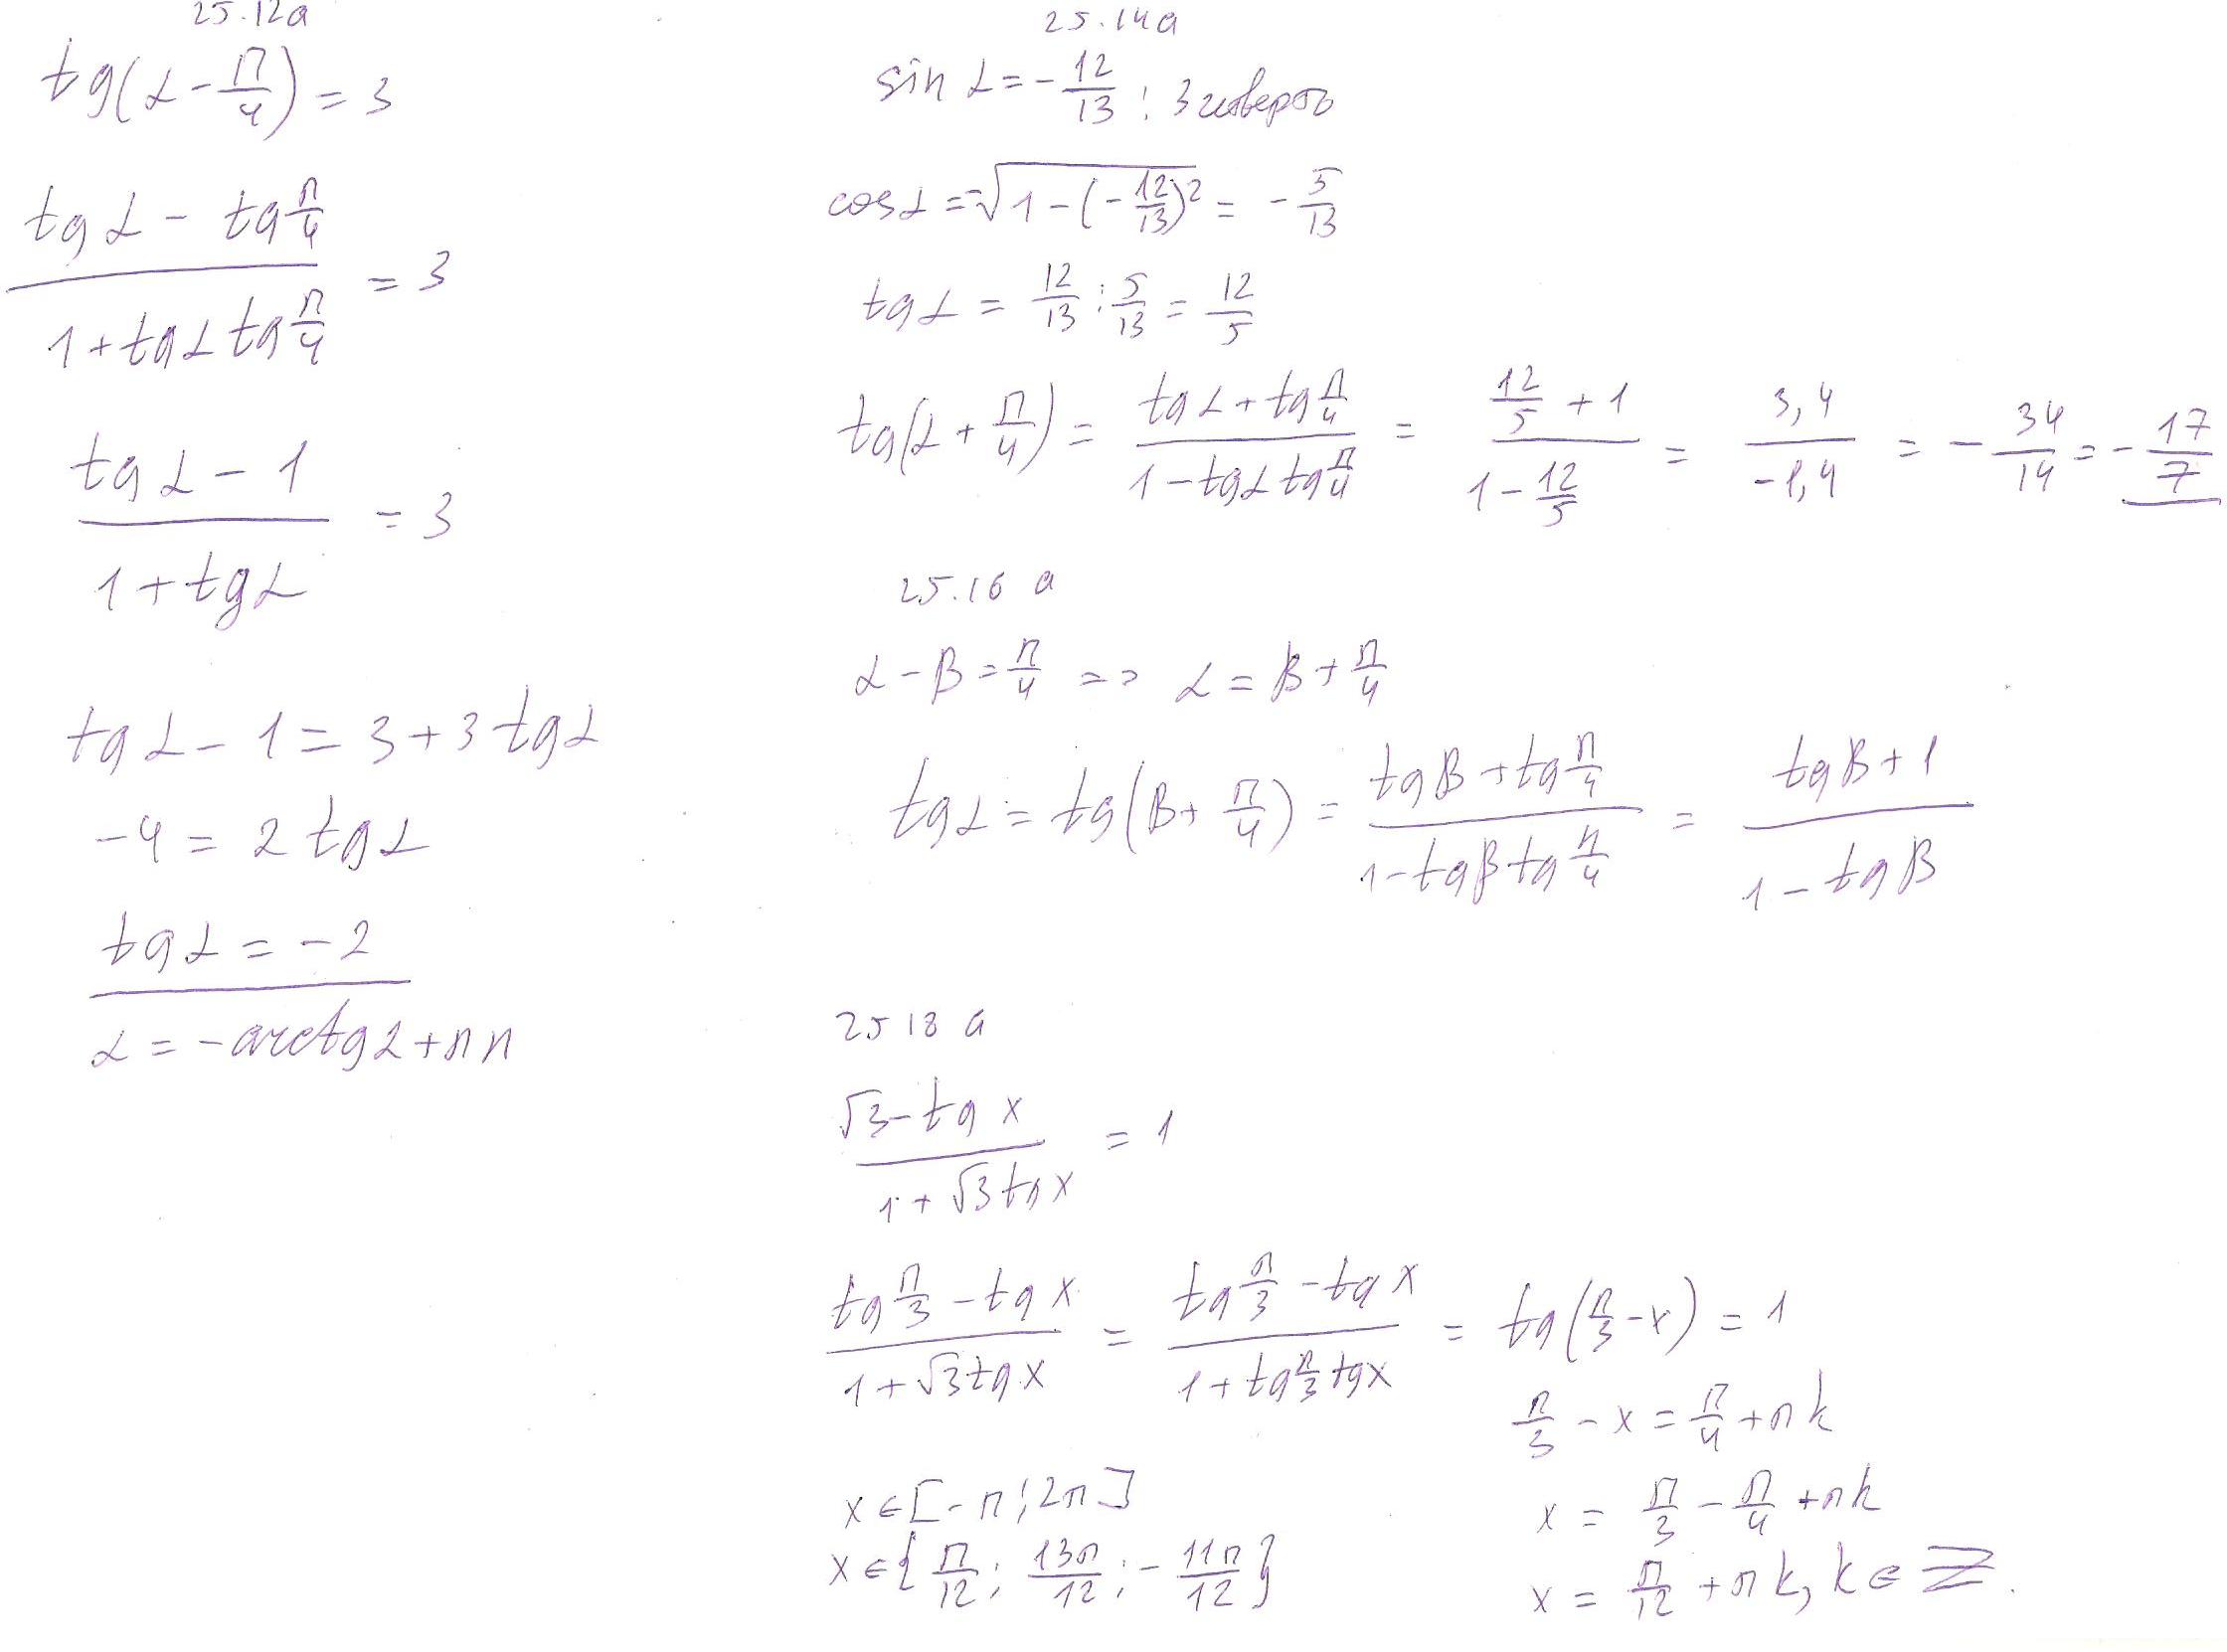 25.12а
tg(α - π/4) = 3
(tgα - tg π/4)/(1 + tgα tg π/4) = 3
(tgα - 1)/(1 + tgα) = 3
tgα - 1 = 3 + 3 tgα
-4 = 2 tgα
tgα = -2
α = -arctg2 + πn
25.14а
sin α = -12/13 ; 3 четверть
cosα = √(1 - (-12/13)²) = -5/13
tgα = 12/13 : 5/13 = 12/5
tg(α + π/4) = (tgα + tg π/4)/(1 - tgα tg π/4) = (12/5 + 1)/(1 - 12/5) = 3,4/-1,4 = -34/14 = -17/7
25.16 а
α - β = π/4 => α = β + π/4
tgα = tg(β + π/4) = (tgβ + tg π/4)/(1 - tgβ tg π/4) = (tgβ + 1)/(1 - tgβ)
25 18 а
(√3 - tg x)/(1 + √3 tg x) = 1
(tg π/3 - tg x)/(1 + √3 tg x) = (tg π/3 - tg x)/(1 + tg π/3 tg x) = tg(π/3 - x) = 1
π/3 - x = π/4 + πk
x = π/3 - π/4 + πk
x = π/12 + πk, k ∈ Z.
x ∈ [-π ; 2π]
x ∈ {π/12 ; 13π/12 ; -11π/12}